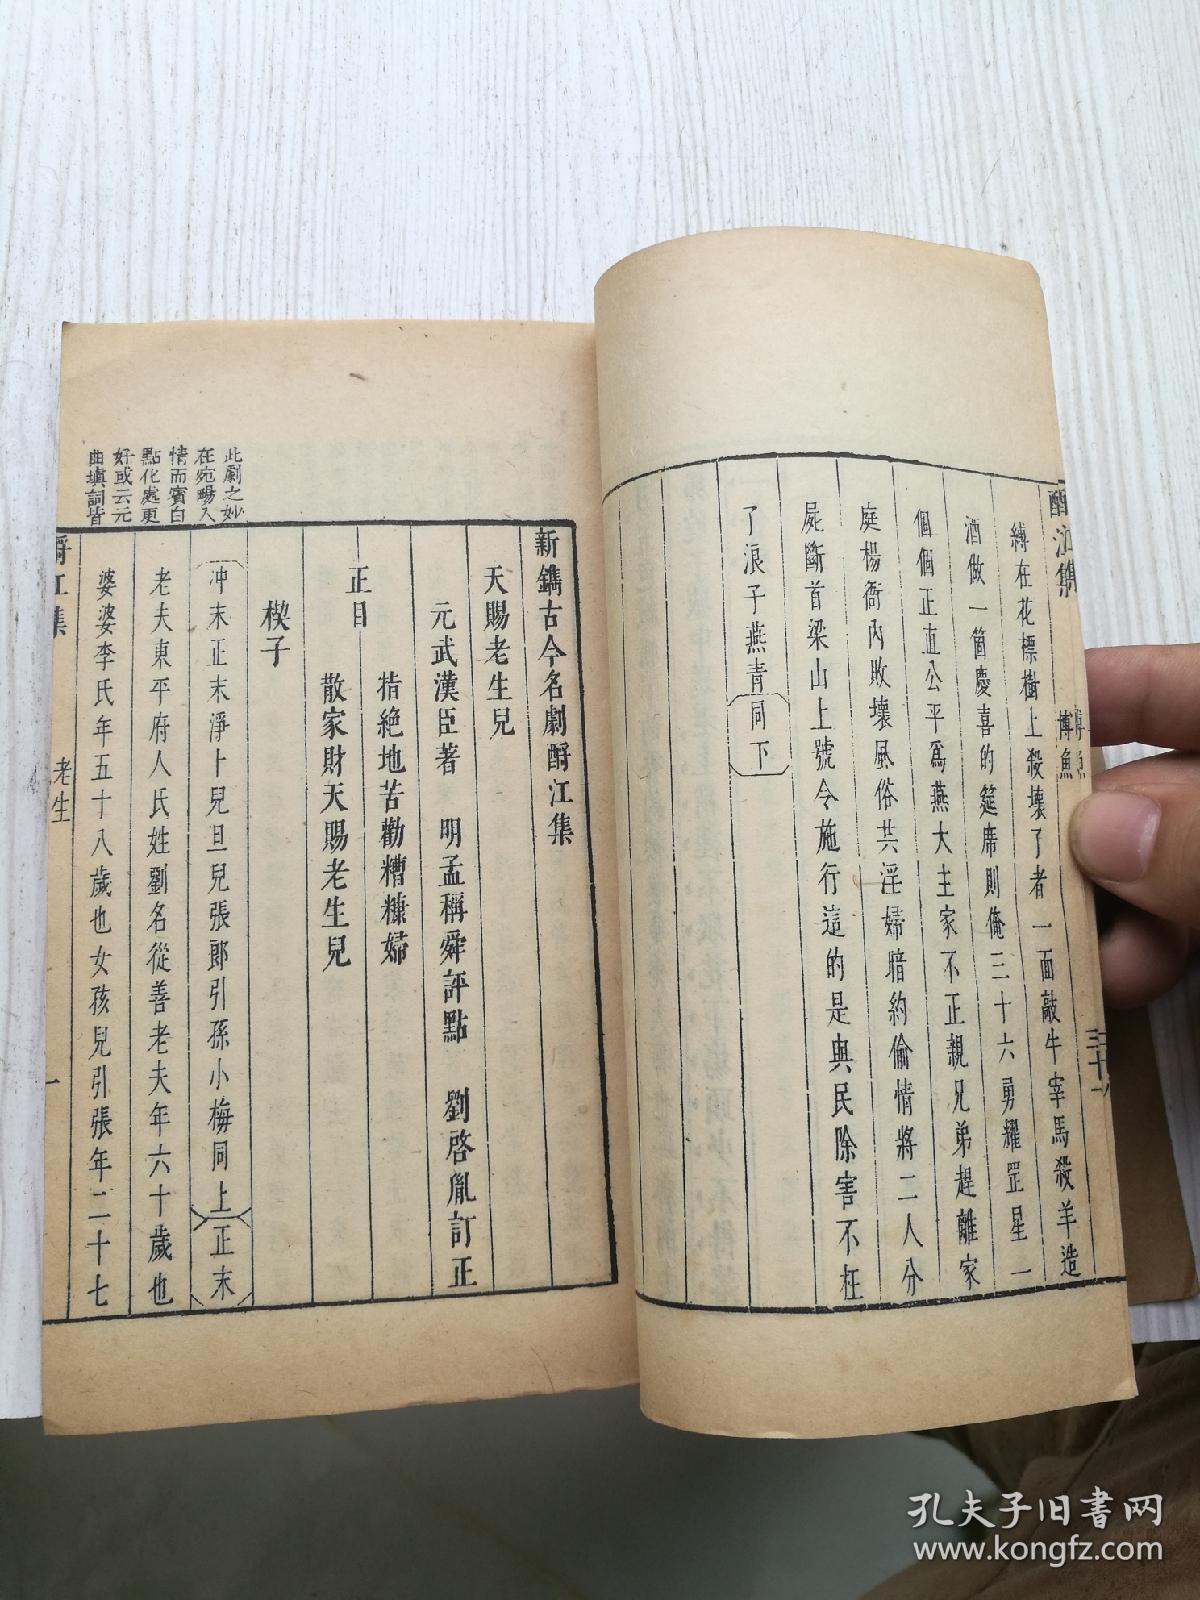 酹江集
博魚
縛在花標樹上殺壞了者一面敲牛宰馬殺羊造
酒做一箇慶喜的筵席則俺三十六勇耀罡星一
個個正直公平爲燕大主家不正親兄弟趕離家
庭楊衙內敗壞風俗共淫婦暗約偷情將二人分
屍斷首梁山上號令施行這的是與民除害不枉
了浪子燕青同下
三十八
新鐫古今名劇酹江集
天賜老生兒
元武漢臣著 明孟稱舜評點 劉啓胤訂正
正目
指絶地苦勸糟糠婦
散家財天賜老生兒
楔子
冲末正末淨卜兒旦兒張郎引孫小梅同上正末
老夫東平府人氏姓劉名從善老夫年六十歲也
婆婆李氏年五十八歲也女孩兒引張年二十七
此劇之妙
在宛暢入
情而賓白
點化處更
好或云元
曲塡詞皆
酹江集
老生
一
孔夫子旧书网
www.kongfz.com